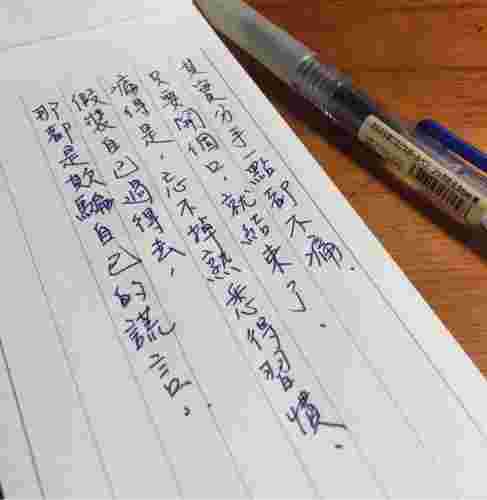 其實分手一點都不痛.
只要開個口,就結束了.
痛得是,忘不掉熟悉得習慣.
假裝自己過得去,
那都是欺騙自己的謊言..